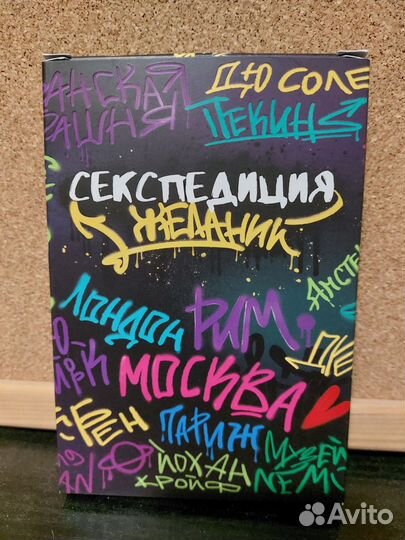 АНСКАЯ
АШНЯ
ДЮ СОЛЕ
ПЕКИН
СЕКСПЕДИЦИЯ
ЖЕЛАНИЙ
АМСТЕ
ЛОНДОН
РИМ.
Ю-
ЙРК
МОСКВА
РЕН
ПАРИЖ
МУЗЕЙ
NEM
ЙОХАН
КРОЙФ
AN
Avito